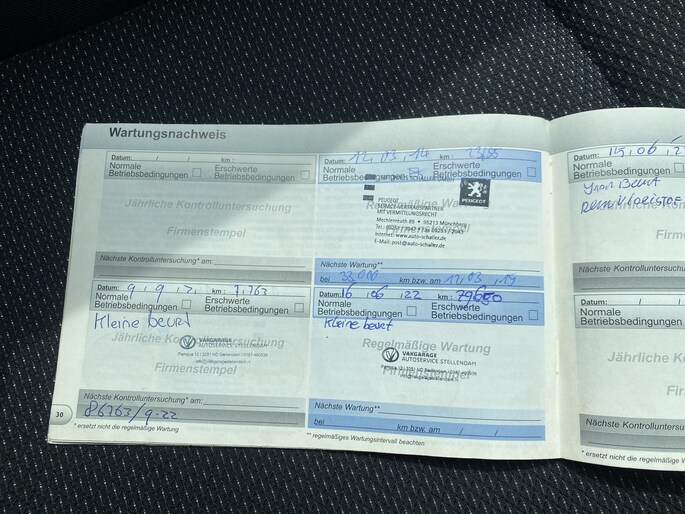 Wartungsnachweis
Datum: / / km :
Normale Betriebsbedingungen
Erschwerte Betriebsbedingungen
Jährliche Kontrolluntersuchung
Firmenstempel
Nächste Kontrolluntersuchung* am:
Datum: 12, 03, 14 km :
Normale Betriebsbedingungen
Erschwerte Betriebsbedingungen
PEUGEOT
PEUGEOT
SERVICE-VERTRAGSPARTNER
MIT VERMITTLUNGSRECHT
Mechlenreuth 88 • 95213 Münchberg
Internet: www.auto-schaller.de
E-Mail: post@auto-schaller.de
Regelmäßige Wartung
Firmenstempel
Nächste Wartung**
bei 33.000 km bzw. am 12, 03, 19
Datum: 9, 9, 2, km : 7.763
Normale Betriebsbedingungen
Erschwerte Betriebsbedingungen
Kleine beurt
Jährliche Kontrolluntersuchung
VAKGARAGE
AUTOSERVICE STELLENDAM
Firmenstempel
Nächste Kontrolluntersuchung* am:
86763/9-22
30
* ersetzt nicht die regelmäßige Wartung
Datum: 16, 06, 22 km : 79680
Normale Betriebsbedingungen
Erschwerte Betriebsbedingungen
Kleine beurt
Regelmäßige Wartung
VAKGARAGE
AUTOSERVICE STELLENDAM
Firmenstempel
Nächste Wartung**
bei km bzw. am / /
** regelmäßiges Wartungsintervall beachten
Datum: 15, 06, 2
Normale
Betriebsbedingungen
Jährliche Kon
Firme
Nächste Kontrollunters
Datum: / /
Normale
Betriebsbedingungen
Jährliche Kontro
Firmen
Nächste Kontrolluntersuch
* ersetzt nicht die regelmäßige Wa